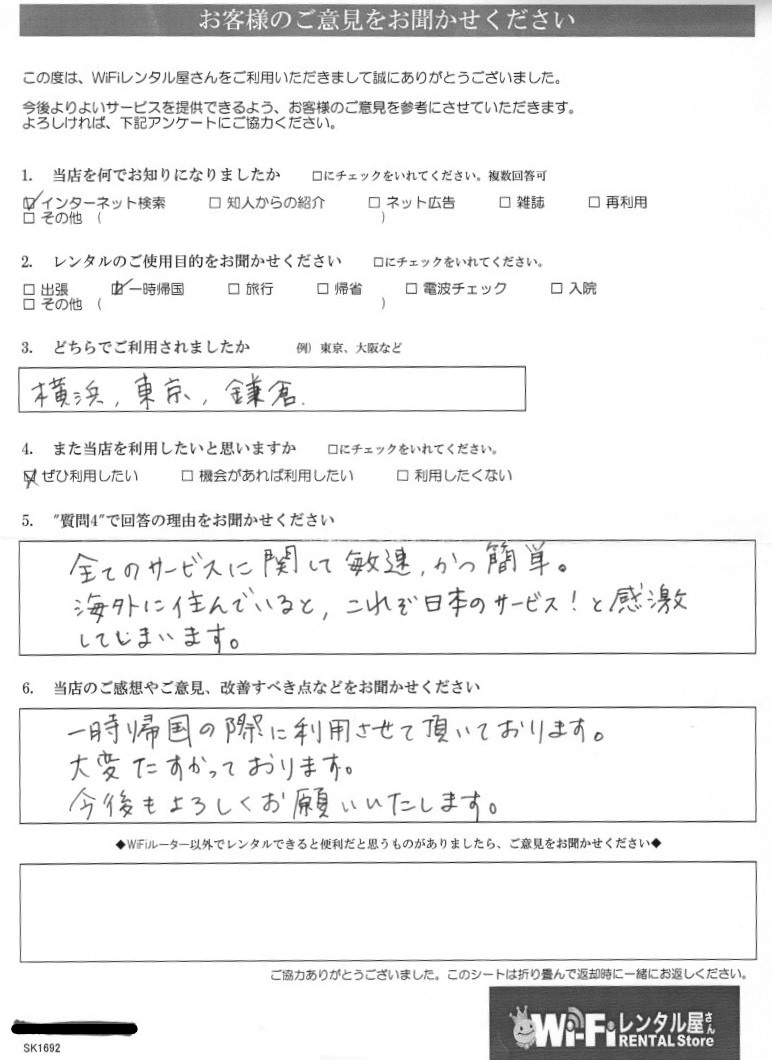 お客様のご意見をお聞かせください
この度は、WiFiレンタル屋さんをご利用いただきまして誠にありがとうございました。
今後よりよいサービスを提供できるよう、お客様のご意見を参考にさせていただきます。
よろしければ、下記アンケートにご協力ください。
1. 当店を何でお知りになりましたか □にチェックをいれてください。複数回答可
☑インターネット検索 □ 知人からの紹介 □ ネット広告 □ 雑誌 □ 再利用
□ その他 ( )
2. レンタルのご使用目的をお聞かせください □にチェックをいれてください。
□ 出張 ☑一時帰国 □ 旅行 □ 帰省 □ 電波チェック □ 入院
□ その他 ( )
3. どちらでご利用されましたか 例）東京、大阪など
横浜, 東京, 鎌倉.
4. また当店を利用したいと思いますか □にチェックをいれてください。
☑ぜひ利用したい □ 機会があれば利用したい □ 利用したくない
5. "質問4"で回答の理由をお聞かせください
全てのサービスに関して敏速, かつ簡単。
海外に住んでいると, これぞ日本のサービス！と感激
してしまいます。
6. 当店のご感想やご意見、改善すべき点などをお聞かせください
一時帰国の際に利用させて頂いております。
大変たすかっております。
今後もよろしくお願いいたします。
◆WiFiルーター以外でレンタルできると便利だと思うものがありましたら、ご意見をお聞かせください◆
ご協力ありがとうございました。このシートは折り畳んで返却時に一緒にお返しください。
SK1692
Wi-Fiレンタル屋さん
RENTAL Store